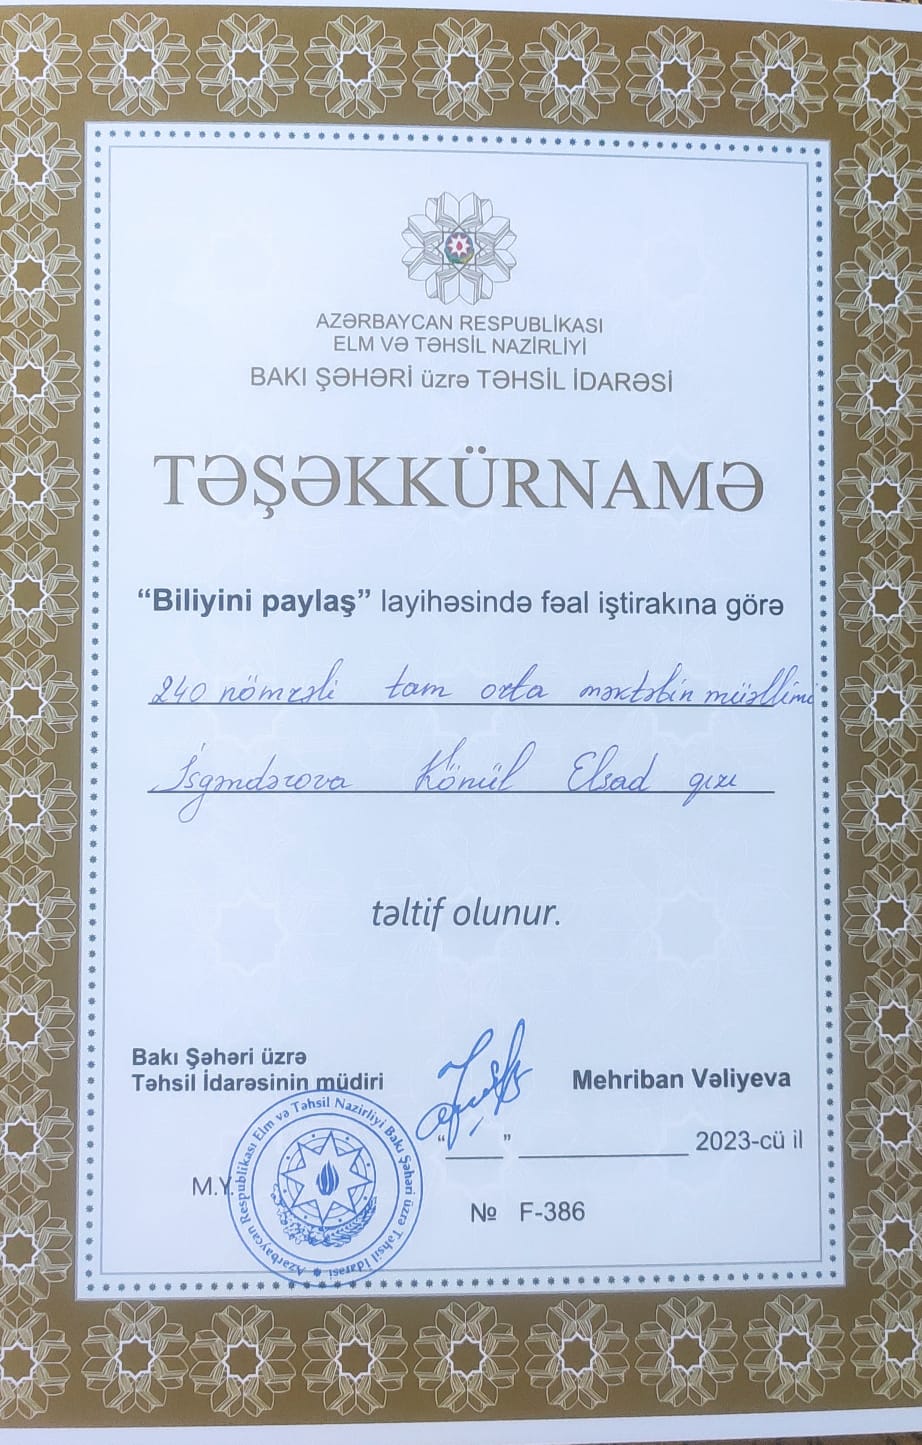 AZƏRBAYCAN RESPUBLİKASI
ELM VƏ TƏHSİL NAZİRLİYİ
BAKI ŞƏHƏRİ üzrə TƏHSİL İDARƏSİ
TƏŞƏKKÜRNAMƏ
“Biliyini paylaş” layihəsində fəal iştirakına görə
240 nömrəli tam orta məktəbin müəllimi
İsgəndərova Könül Elsad qızı
təltif olunur.
Bakı Şəhəri üzrə
Təhsil İdarəsinin müdiri
Mehriban Vəliyeva
“____” ______________ 2023-cü il
M.Y.
№ F-386
Azərbaycan Respublikası Elm və Təhsil Nazirliyi Bakı Şəhəri üzrə Təhsil İdarəsi